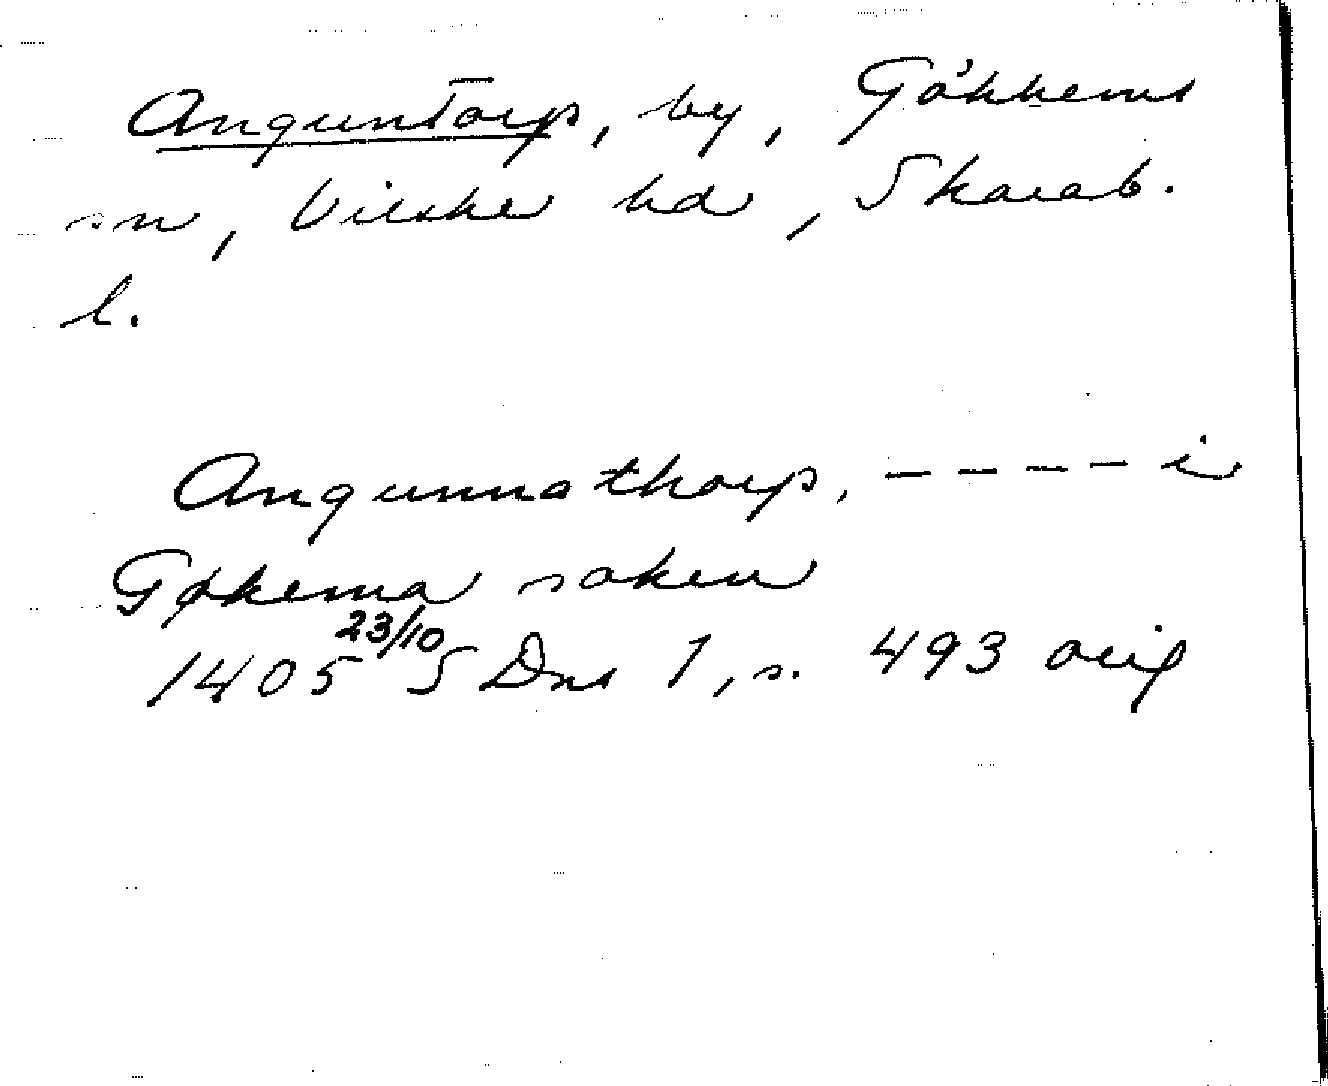 Anguntorp, by, Gökhems
sn, Vilske hd, Skarab.
l.
Angunnathorp, - - - - i
Gøkema soken
1405 23/10 SDns 1, s. 493 orig